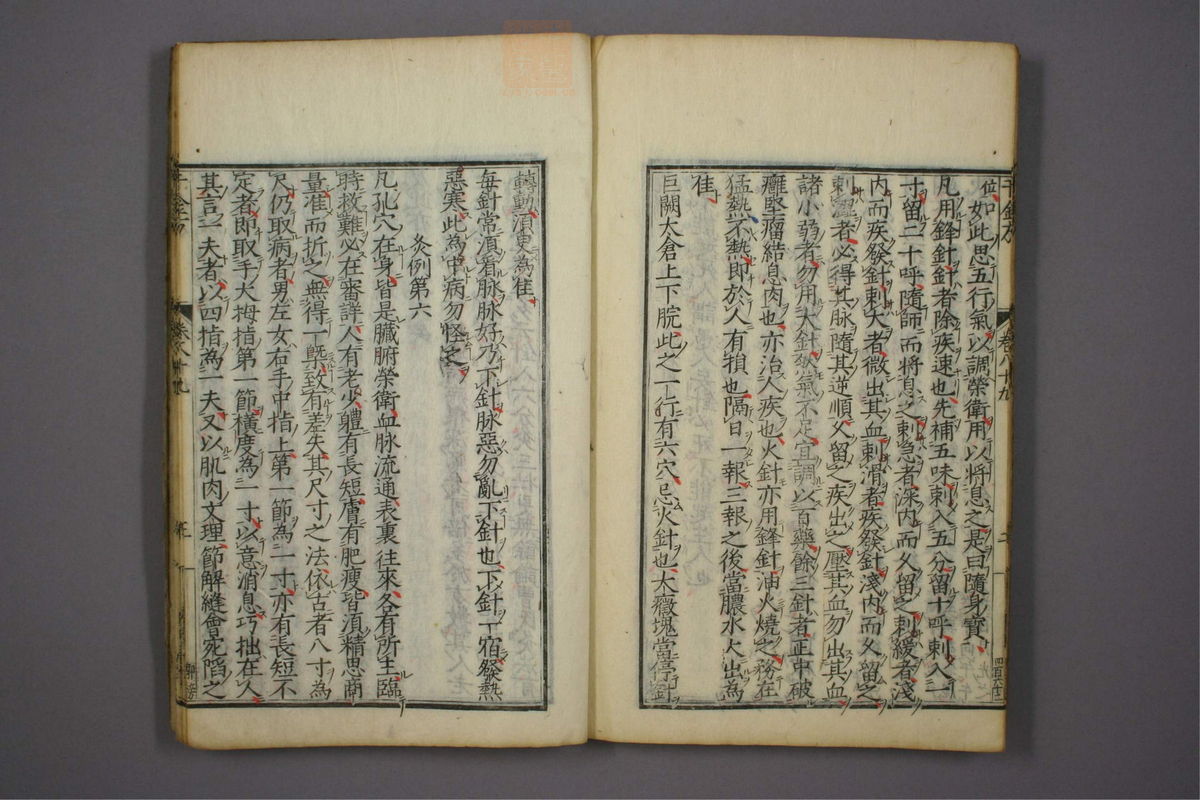 位如此思五行氣以調榮衛用以將息之是曰隨身寶
凡用鋒針針者除疾速也先補五味刺入五分留十呼刺入一
寸留二十呼隨師而將息之刺急者深內而久留之刺緩者淺
內而疾發針刺大者微出其血刺滑者疾發針淺內而久留之
刺澀者必得其脉隨其逆順久留之疾出之壓其血勿出其血
諸小弱者勿用大針然氣不足宜調以百藥餘三針者正中破
癰堅瘤結息肉也亦治人疾也火針亦用鋒針油火燒之務在
猛熱不熱即於人有損也隔日一報三報之後當膿水大出為
佳
巨闕大倉上下脘此之一行有六穴忌火針也大癥塊當停針
轉動須臾為佳
每針常須看脉脉好乃下針脉惡勿亂下針也下針一宿發熱
惡寒此為中病勿怪之
灸例第六
凡孔穴在身皆是臟腑榮衛血脉流通表裏往來各有所主臨
時救難必在審詳人有老少體有長短膚有肥瘦皆須精思商
量准而折之無得一槩致有差失其尺寸之法依古者八寸為
尺仍取病者男左女右手中指上第一節為一寸亦有長短不
定者即取手大拇指第一節橫度為一寸以意消息巧拙在人
其言一夫者以四指為一夫又以肌肉文理節解縫會宛陷之